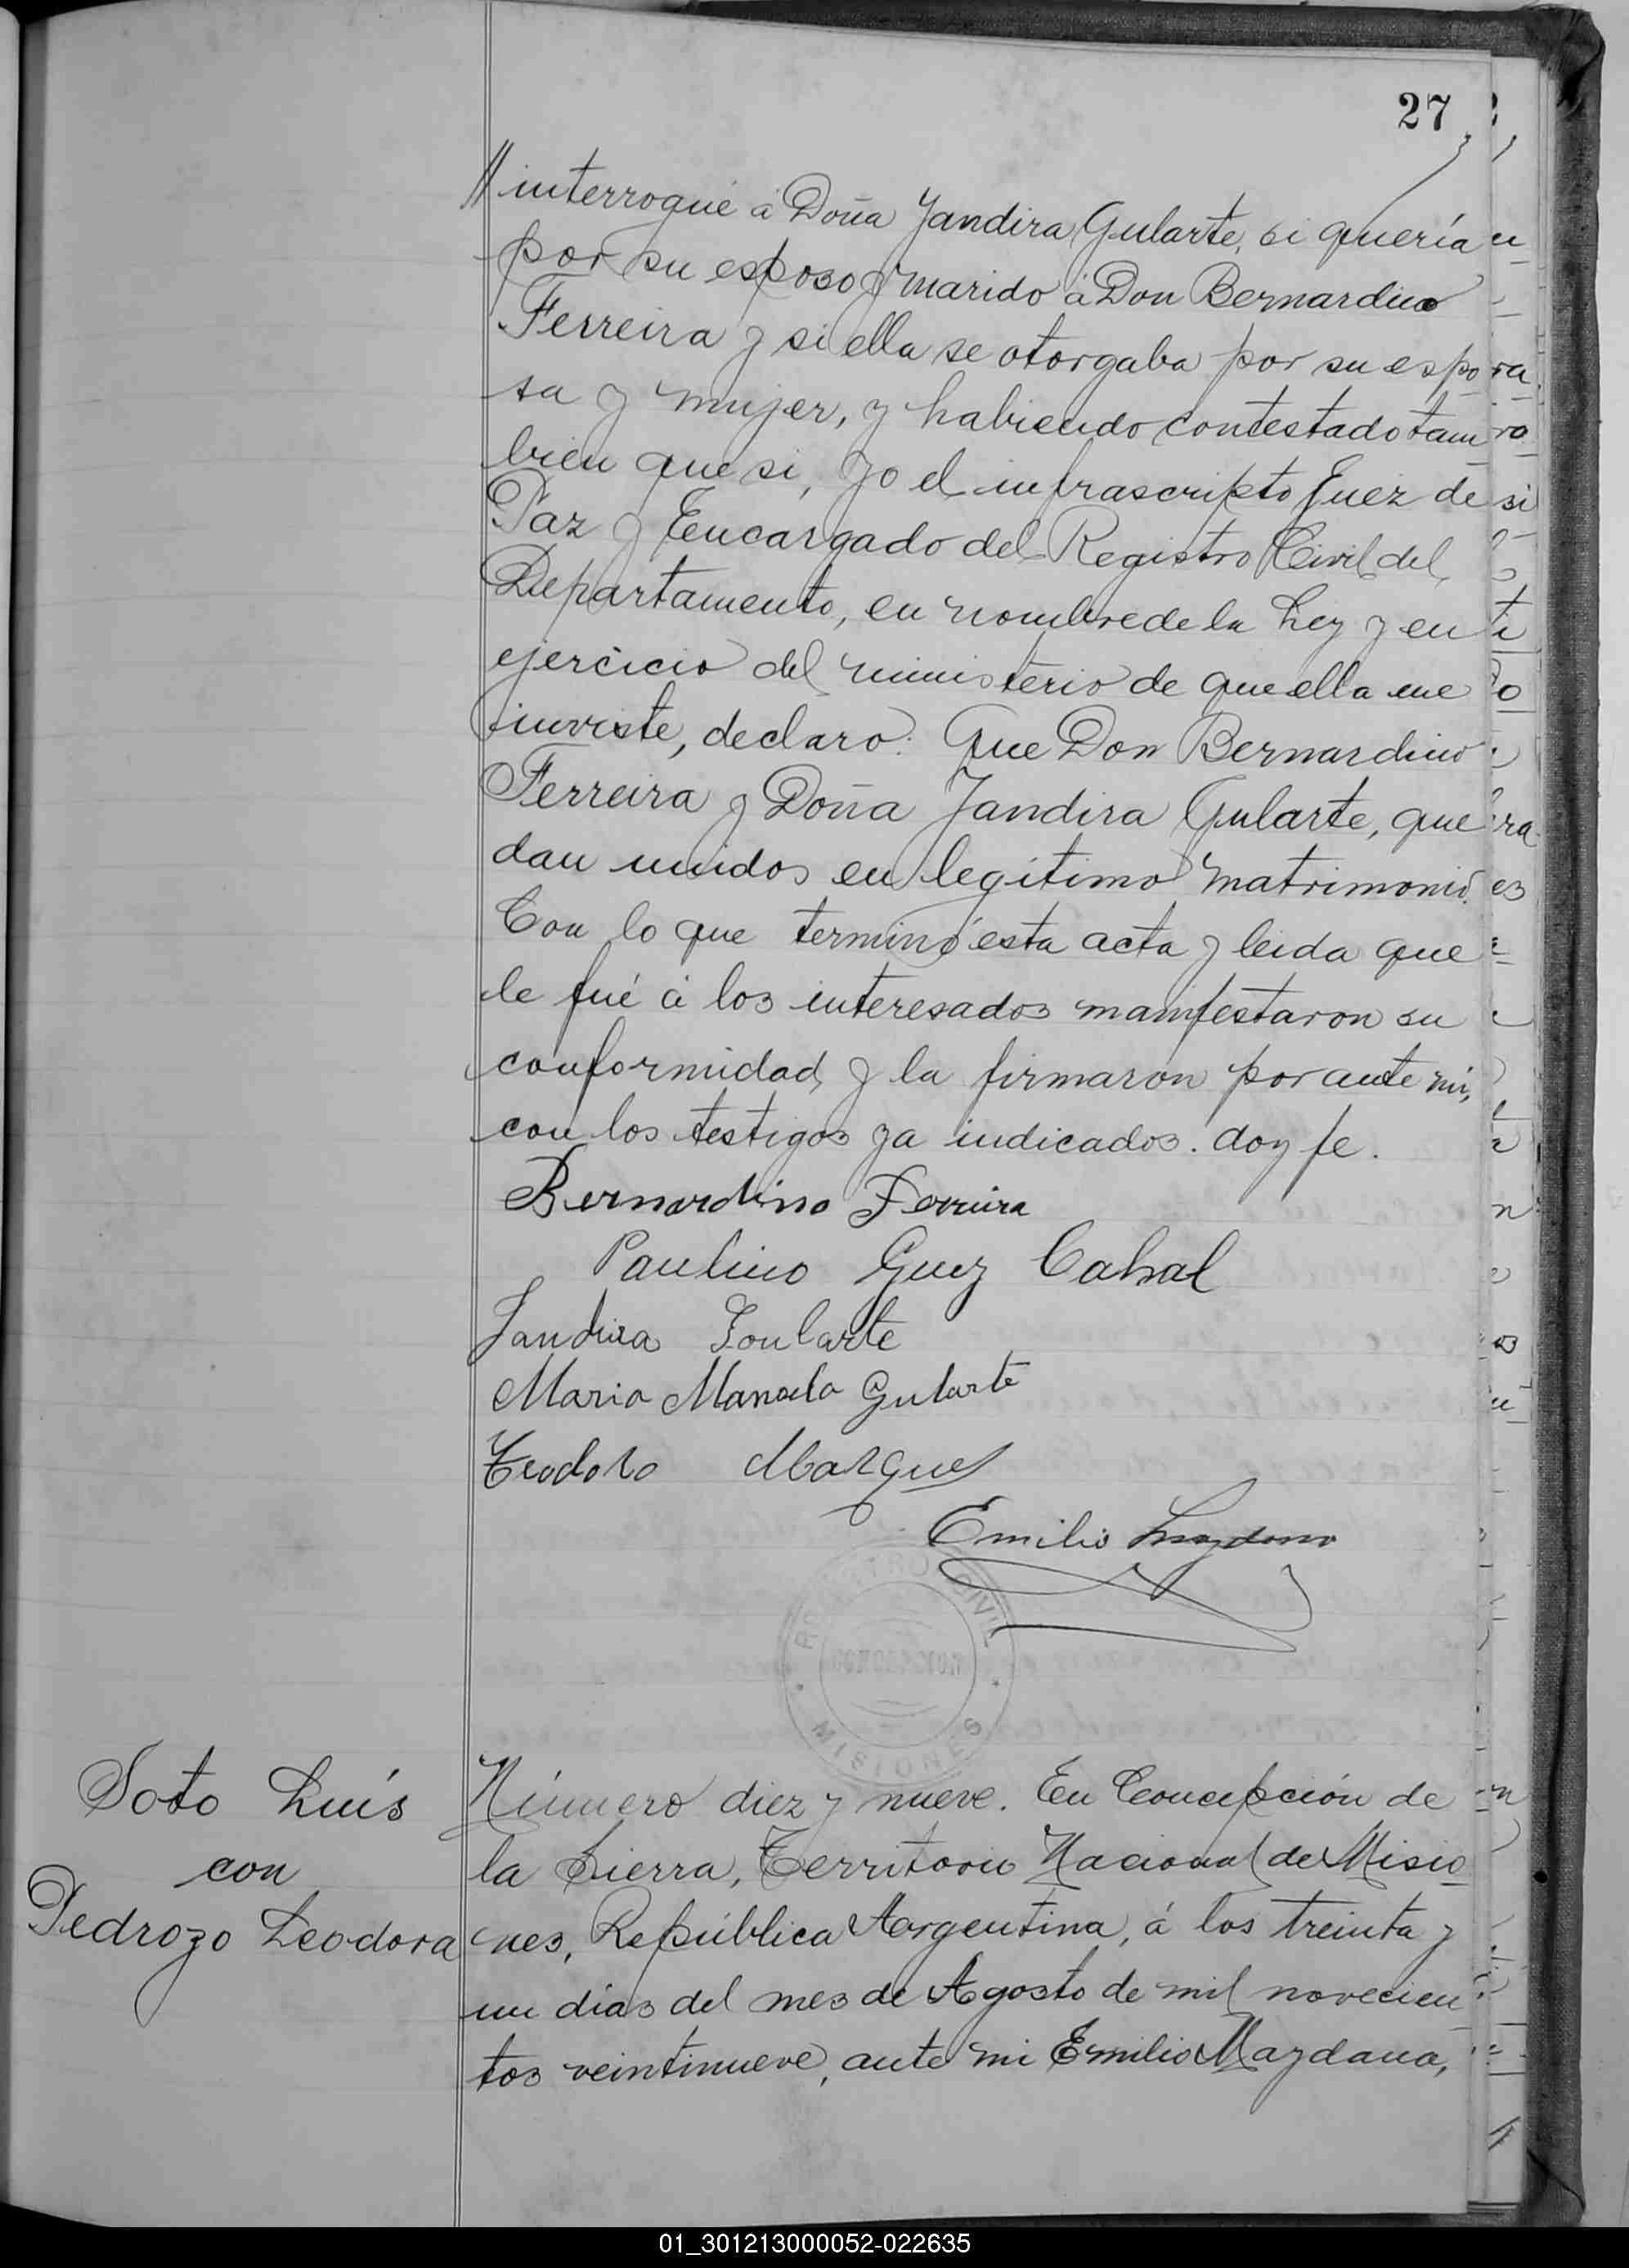 27
interrogué á Doña Jandira Gularte, si quería
por su esposo y marido á Don Bernardino
Ferreira y si ella se otorgaba por su espo
sa y mujer, y habiendo contestado tam
bien que si, yo el infrascripto Juez de
Paz y Encargado del Registro Civil del
Departamento, en nombre de la Ley y en
ejercicio del ministerio de que ella me
inviste, declaro: Que Don Bernardino
Ferreira y Doña Jandira Gularte, que
dan unidos en legítimo matrimonio.
Con lo que terminó esta acta y leida que
le fué á los interesados manifestaron su
conformidad y la firmaron por ante mi,
con los testigos ya indicados. doy fe.
Bernardino Ferreira
Paulino Guez Cabral
Jandira Goularte
Maria Manuela Gularte
Teodoro Marques
Emilio Magdana
REGISTRO CIVIL
MISIONES
Soto Luís
con
Pedrozo Leodora
Número diez y nueve. En Concepción de
la Sierra, Territorio Nacional de Misio
nes, República Argentina, á los treinta y
un días del mes de Agosto de mil novecien
tos veintinueve, ante mi Emilio Magdana,
01_301213000052-022635